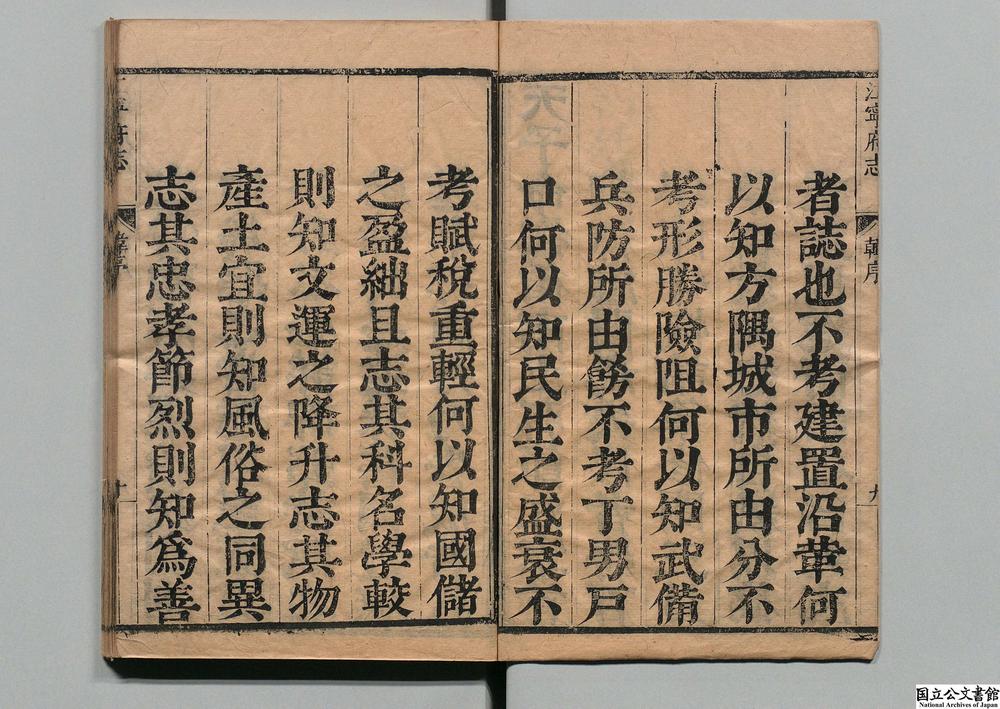 江寧府志
韓序
九
者誌也不考建置沿革何
以知方隅城市所由分不
考形勝險阻何以知武備
兵防所由餝不考丁男戶
口何以知民生之盛衰不
考賦稅重輕何以知國儲
之盈絀且志其科名學較
則知文運之降升志其物
產土宜則知風俗之同異
志其忠孝節烈則知為善
府志
十
国立公文書館
National Archives of Japan